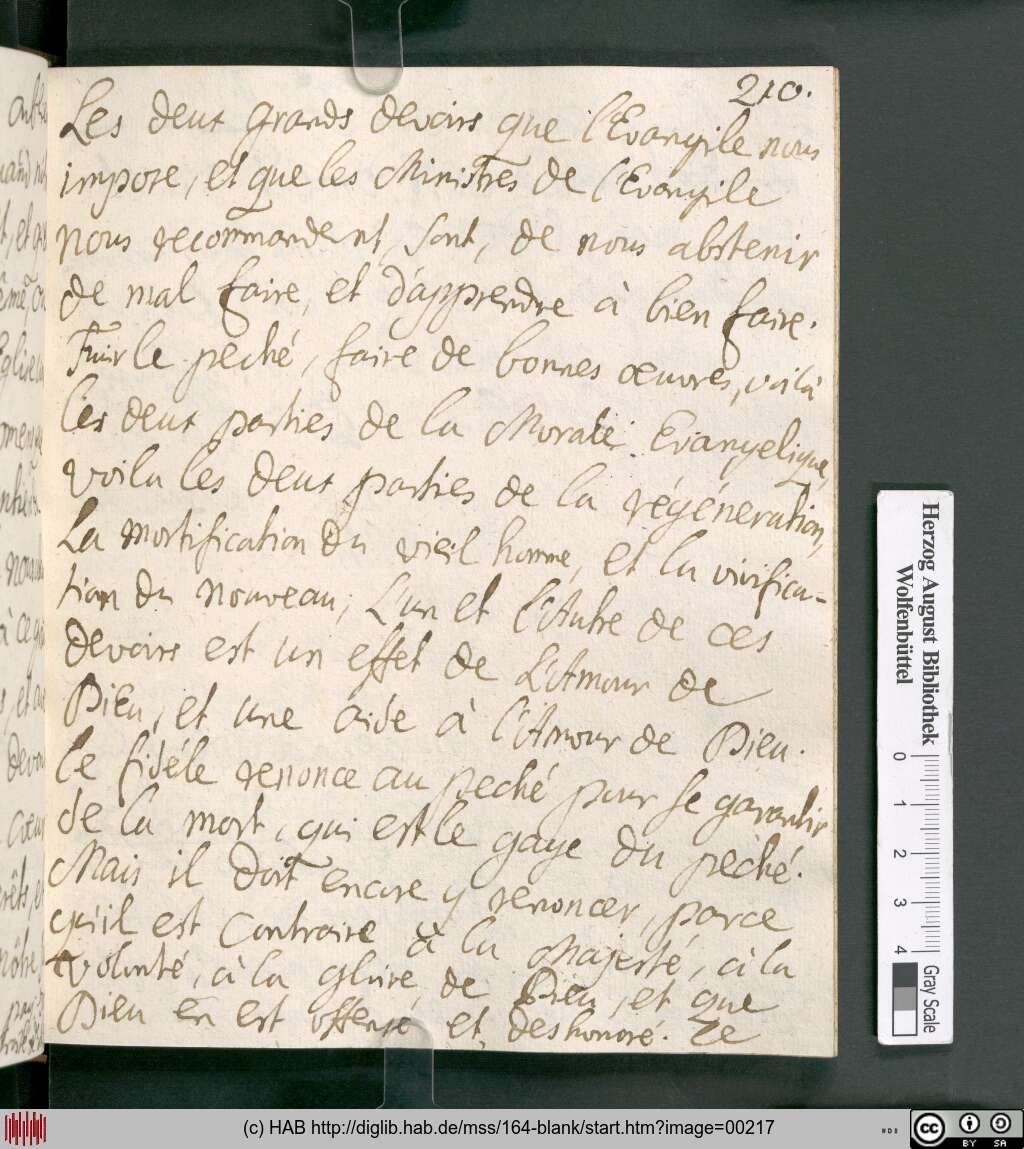 210.
Les deux grands devoirs que l'Evangile nous
impose, et que les Ministres de l'Evangile
nous recommandent, sont, de nous abstenir
de mal faire, et d'apprendre à bien faire.
Fuir le peché, faire de bonnes œuvres, voilà
les deux parties de la Morale Evangelique,
voila les deux parties de la régéneration,
La mortification du vieil homme, et la vivifica-
tion du nouveau; L'un et l'Autre de ces
devoirs est un effet de L'Amour de
Dieu, et une aide à l'Amour de Dieu.
Le fidéle renonce au peché pour se garantir
de la mort, qui est le gage du peché.
Mais il doit encore y renoncer, parce
qu'il est Contraire à la Majesté, à la
volonté, à la gloire, de Dieu, et que
Dieu en est offensé et, deshonoré. Ze
Herzog August Bibliothek
Wolfenbüttel
0 1 2 3 4
Gray Scale
(c) HAB http://diglib.hab.de/mss/164-blank/start.htm?image=00217
cc BY SA